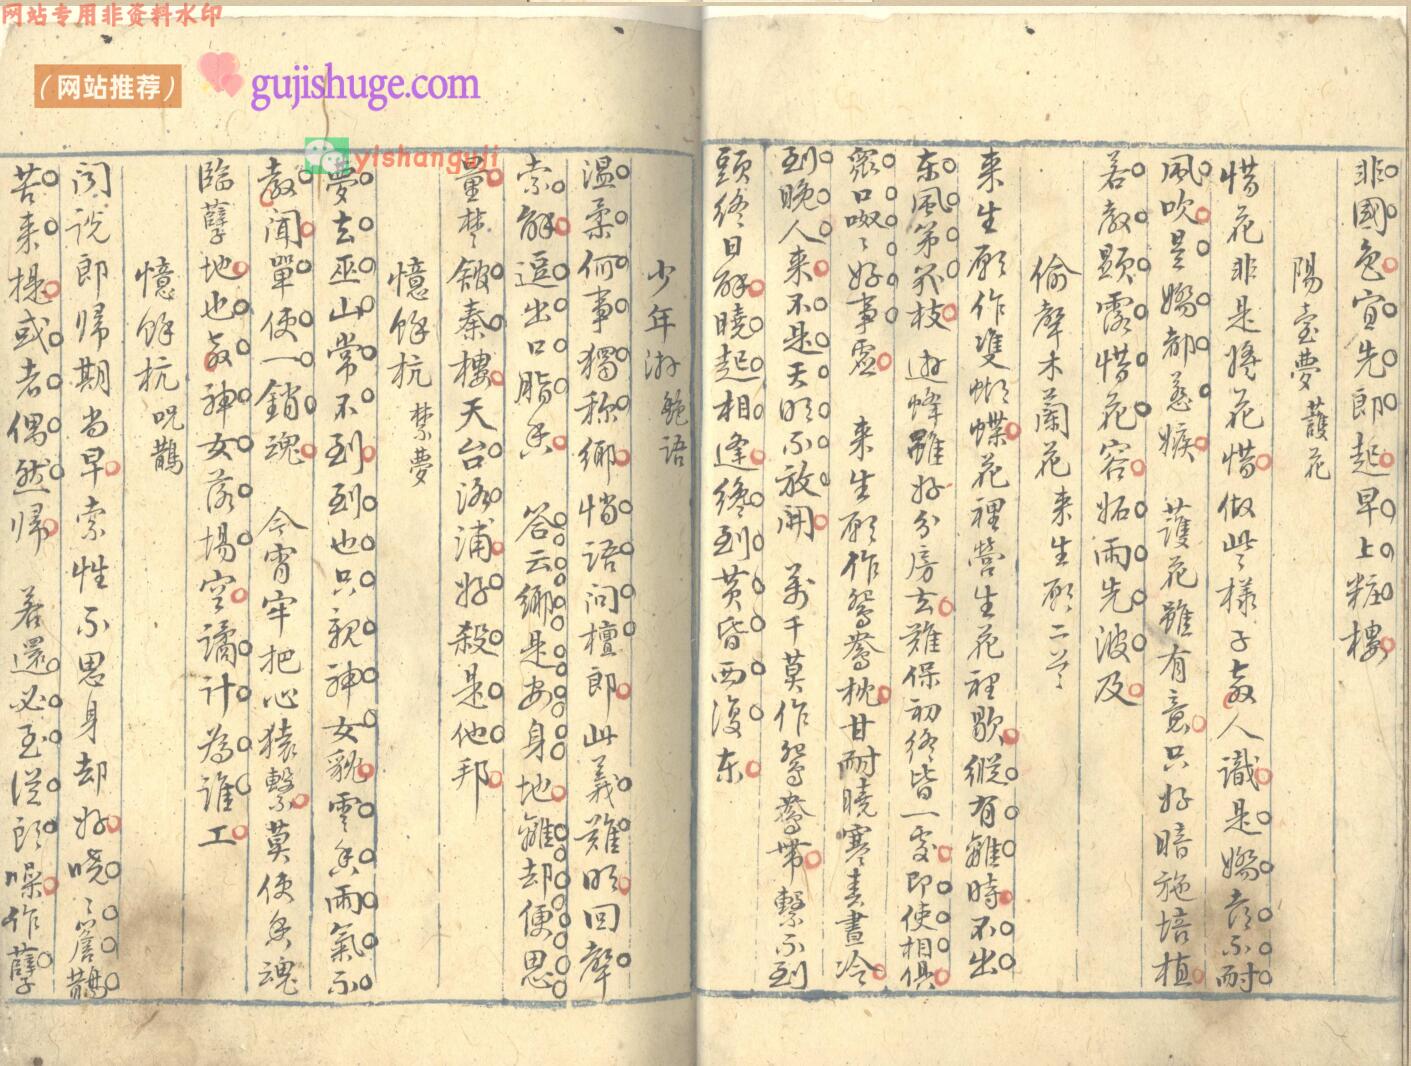 网站专用非资料水印
（网站推荐）
gujishuge.com
yishanguji
非國色宜先郎起早上粧樓
陽臺夢 護花
惜花非是愛花惜做些樣子教人識是嬌花不耐
風吹是嬌都惹嫉 護花雖有意只好暗施培植
若教顯露惜花容妬雨先波及
偷聲木蘭花 来生願二首
来生願作雙蝴蝶花裡營生花裡歇縱有離時不出
東風第幾枝 遊蜂雖好分房去難保初終皆一處即使相俱
衆口呶〻好事虛 来生願作鴛鴦枕甘耐曉寒春晝冷
到晚人来不是天明不放開 萬千莫作鴛鴦帶繫不到
頭終日解曉起相逢纔到黄昏西復東
少年游 艶语
温柔何事獨称鄉悄语问檀郎此義難明回聲
索解逗出口脂香 答云鄉是安身地離却便思
量楚館秦樓天台洛浦好殺是他邦
憶餘杭 禁夢
夢去巫山常不到到也只亲神女貌雲香雨氣不
教聞單使一銷魂 今宵牢把心猿繫莫使香魂
臨孽地也教神女落場空譎计為誰工
憶餘杭 咒鵲
闻说郎帰期尚早索性不思身却好哓〻簷鵲
苦来提或者偶然帰 若還必至従頭噪作孽